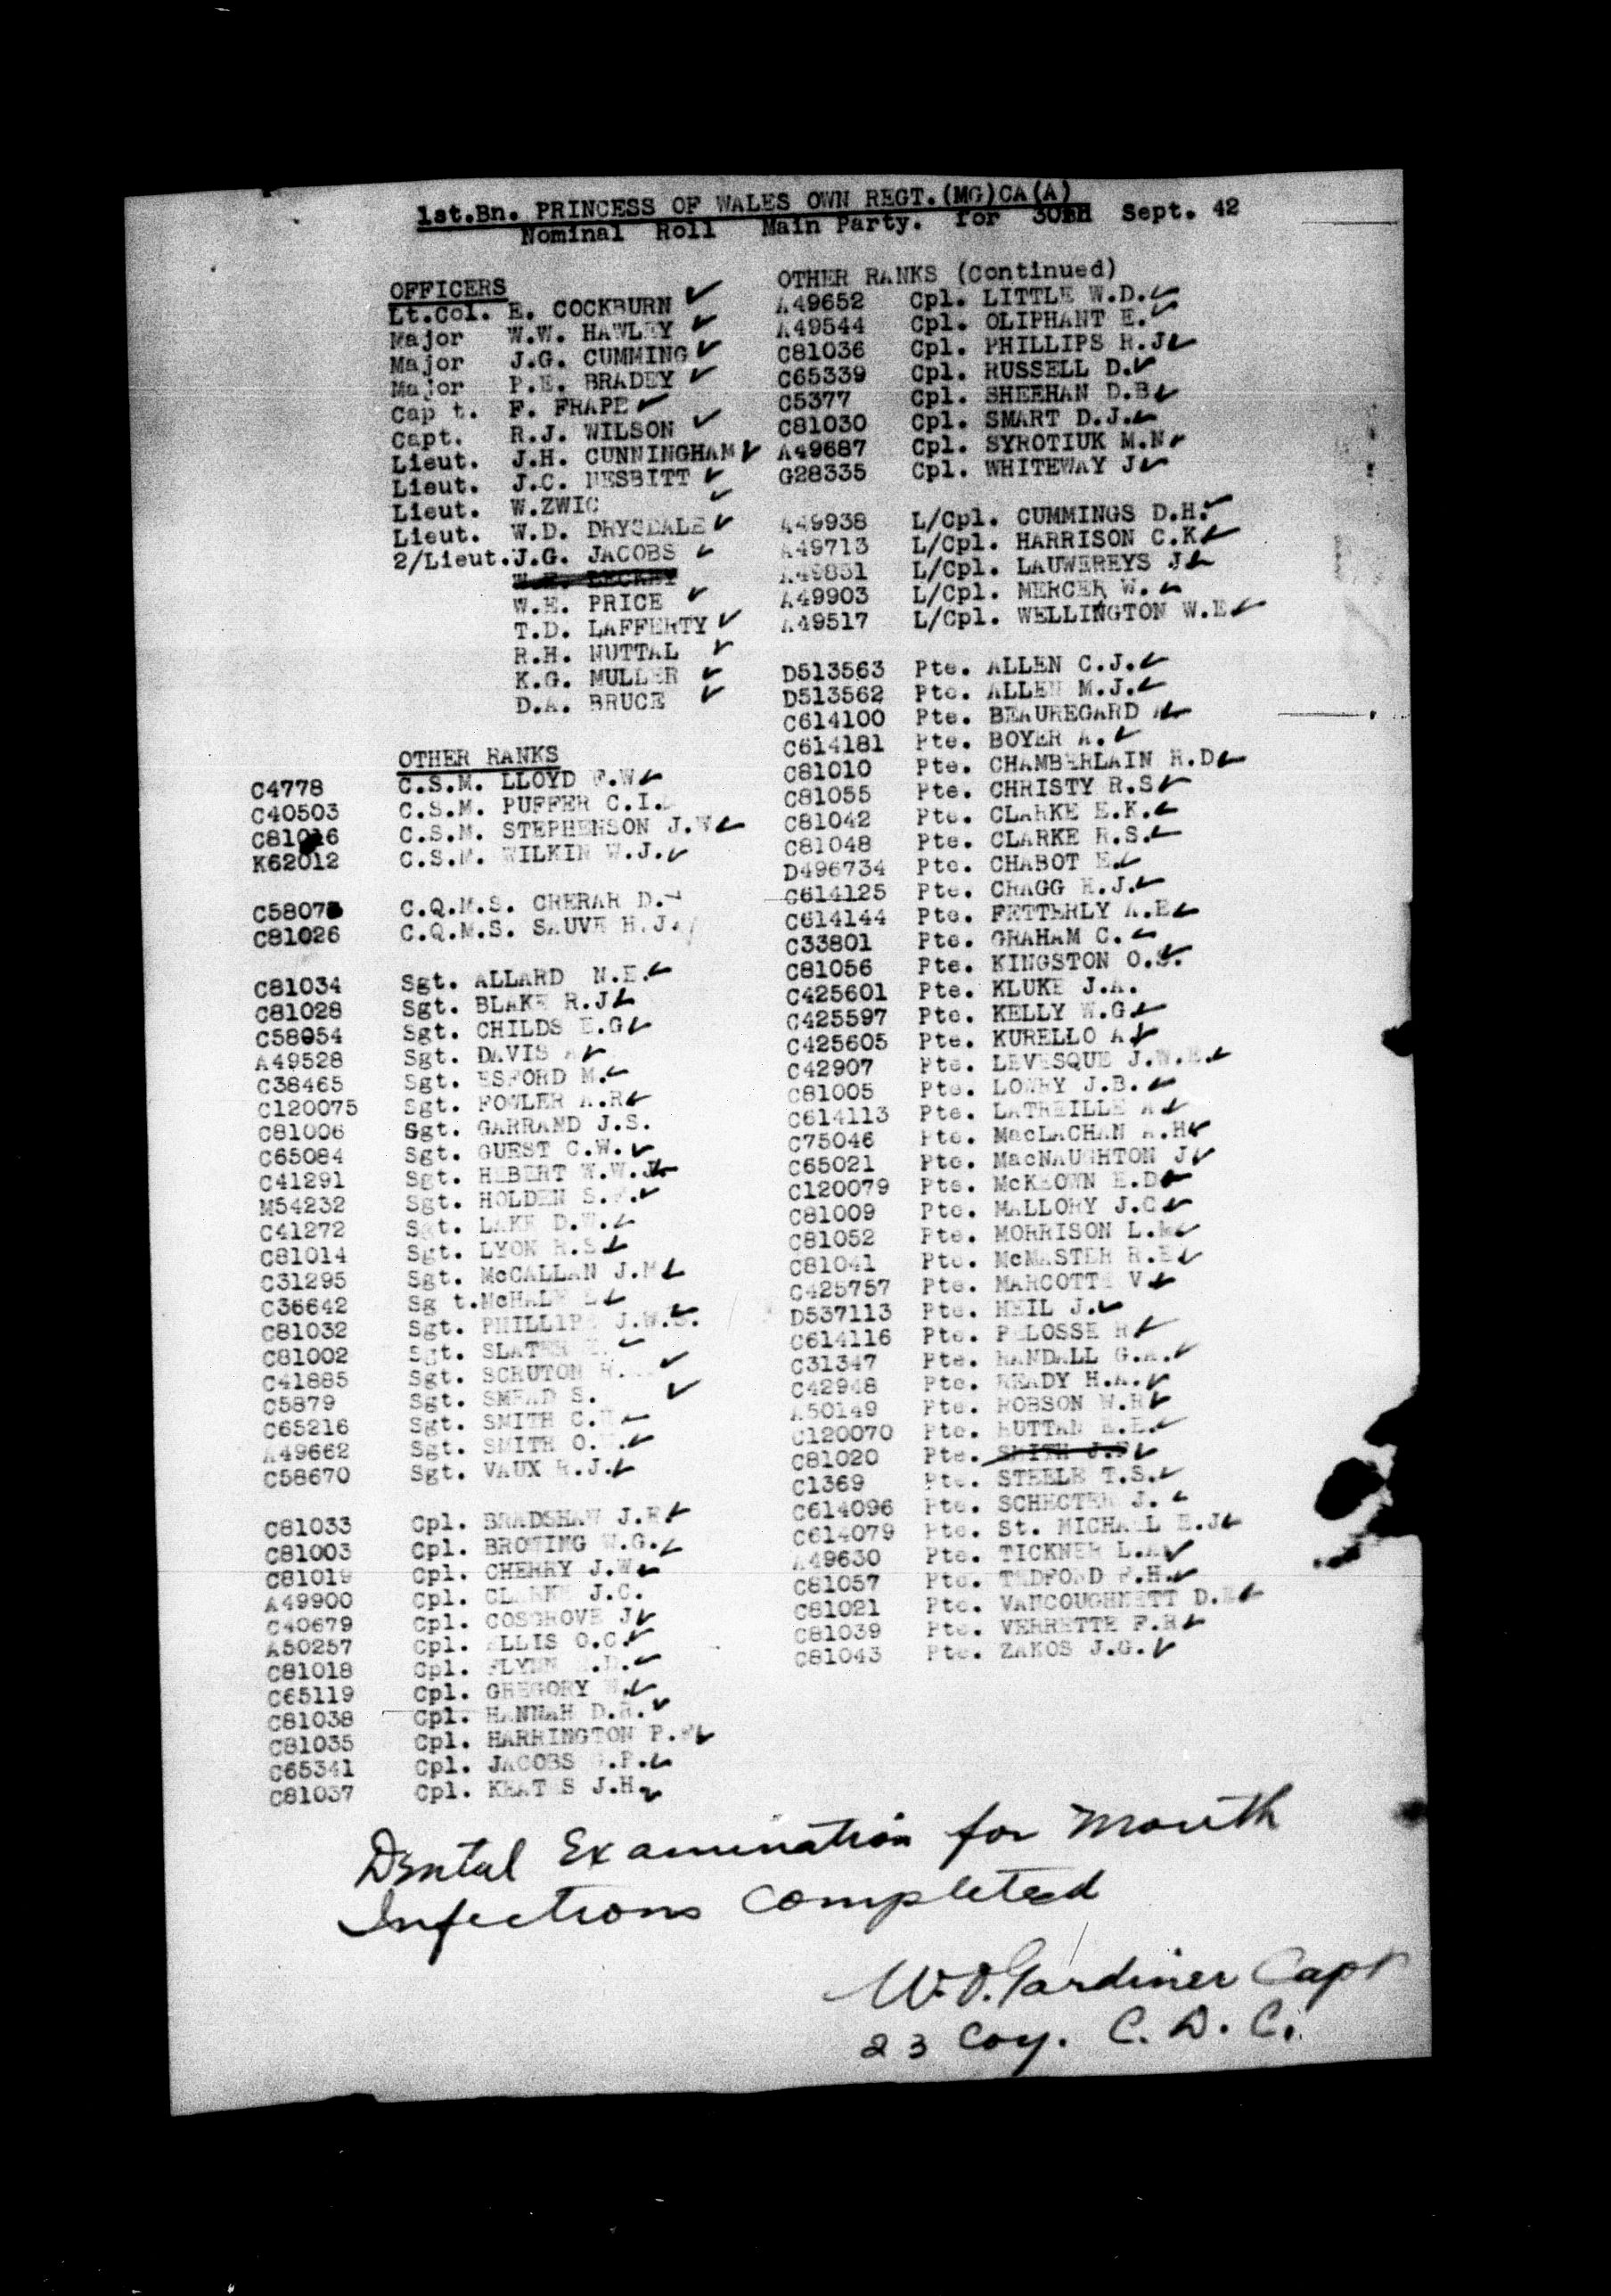 1st.Bn. PRINCESS OF WALES OWN REGT.(MG)CA(A)
Nominal Roll Main Party. for 30TH Sept. 42
OFFICERS
Lt.Col. E. COCKBURN ✓
Major W.W. HAWLEY ✓
Major J.G. CUMMING ✓
Major P.E. BRADEY ✓
Cap t. F. FRAPE ✓
Capt. R.J. WILSON ✓
Lieut. J.H. CUNNINGHAM ✓
Lieut. J.C. NESBITT ✓
Lieut. W.ZWIC ✓
Lieut. W.D. DRYSDALE ✓
2/Lieut. J.G. JACOBS ✓
W.E. PRICE ✓
T.D. LAFFERTY ✓
R.H. NUTTAL ✓
K.G. MULLER ✓
D.A. BRUCE ✓
OTHER RANKS
C4778 C.S.M. LLOYD F.W ✓
C40503 C.S.M. PUFFER C.I.
C81016 C.S.M. STEPHENSON J.W ✓
K62012 C.S.M. WILKIN W.J. ✓
C5807 C.Q.M.S. CRERAR D. ✓
C81026 C.Q.M.S. SAUVE H.J. ✓
C81034 Sgt. ALLARD N.E. ✓
C81028 Sgt. BLAKE R.J ✓
C58054 Sgt. CHILDS E.G ✓
A49528 Sgt. DAVIS A ✓
C38465 Sgt. ESFORD M. ✓
C120075 Sgt. FOWLER A.R ✓
C81006 Sgt. GARRAND J.S.
C65084 Sgt. GUEST C.W. ✓
C41291 Sgt. HEBERT W.W.J ✓
M54232 Sgt. HOLDEN S. ✓
C41272 Sgt. LAKE D.W. ✓
C81014 Sgt. LYON R.S ✓
C31295 Sgt. McCALLAN J.M ✓
C36642 Sg t. McHALE ✓
C81032 Sgt. PHILLIPS J.W.S. ✓
C81002 Sgt. SLATER ✓
C41885 Sgt. SCRUTON R. ✓
C5879 Sgt. SMEAD S. ✓
C65216 Sgt. SMITH C. ✓
A49662 Sgt. SMITH O. ✓
C58670 Sgt. VAUX R.J. ✓
C81033 Cpl. BRADSHAW J.R ✓
C81003 Cpl. BROWING W.G. ✓
C81019 Cpl. CHERRY J.W ✓
A49900 Cpl. CLARKE J.C.
C40679 Cpl. COSGROVE J ✓
A50257 Cpl. ELLIS O.C ✓
C81018 Cpl. FLYNN .D. ✓
C65119 Cpl. GREGORY W. ✓
C81038 Cpl. HANNAH D.R. ✓
C81035 Cpl. HARRINGTON P. ✓
C65341 Cpl. JACOBS G.P. ✓
C81037 Cpl. KEATES J.H. ✓
OTHER RANKS (Continued)
A49652 Cpl. LITTLE W.D. ✓
A49544 Cpl. OLIPHANT E. ✓
C81036 Cpl. PHILLIPS R.J ✓
C65339 Cpl. RUSSELL D. ✓
C5377 Cpl. SHEEHAN D.B ✓
C81030 Cpl. SMART D.J. ✓
A49687 Cpl. SYROTIUK M.N ✓
G28335 Cpl. WHITEWAY J ✓
A49938 L/Cpl. CUMMINGS D.H. ✓
A49713 L/Cpl. HARRISON C.K ✓
A49831 L/Cpl. LAUWEREYS J ✓
A49903 L/Cpl. MERCER W. ✓
A49517 L/Cpl. WELLINGTON W.E ✓
D513563 Pte. ALLEN C.J. ✓
D513562 Pte. ALLEN M.J. ✓
C614100 Pte. BEAUREGARD ✓
C614181 Pte. BOYER A. ✓
C81010 Pte. CHAMBERLAIN R.D ✓
C81055 Pte. CHRISTY R.S ✓
C81042 Pte. CLARKE E.K. ✓
C81048 Pte. CLARKE R.S. ✓
D496734 Pte. CHABOT E. ✓
C614125 Pte. CRAGG H.J. ✓
C614144 Pte. FETTERLY A.E ✓
C33801 Pte. GRAHAM C. ✓
C81056 Pte. KINGSTON O.S. ✓
C425601 Pte. KLUKE J.A.
C425597 Pte. KELLY W.G ✓
C425605 Pte. KURELLO A ✓
C42907 Pte. LEVESQUE J.W.E. ✓
C81005 Pte. LOWRY J.B. ✓
C614113 Pte. LATREILLE A ✓
C75046 Pte. MacLACHAN A.H ✓
C65021 Pte. MacNAUGHTON J ✓
C120079 Pte. McKEOWN E.D ✓
C81009 Pte. MALLORY J.C ✓
C81052 Pte. MORRISON L.M ✓
C81041 Pte. McMASTER R.E ✓
C425757 Pte. MARCOTTE V ✓
D537113 Pte. NEIL J. ✓
C614116 Pte. PELOSSE R ✓
C31347 Pte. RANDALL G.A. ✓
C42948 Pte. READY H.A. ✓
A50149 Pte. ROBSON W.H ✓
C120070 Pte. RUTTAN E.E. ✓
C81020 Pte. SMITH J. ✓
C1369 Pte. STEELE T.S. ✓
C614096 Pte. SCHECTER J. ✓
C614079 Pte. St. MICHAEL E.J ✓
A49630 Pte. TICKNER L.A ✓
C81057 Pte. TEDFORD F.H. ✓
C81021 Pte. VANCOUGHNETT D.E ✓
C81039 Pte. VERRETTE F.R ✓
C81043 Pte. ZAKOS J.G. ✓
Dental Examination for Mouth
Infections Completed
W.D. Gardiner Capt
23 Coy. C.D.C.